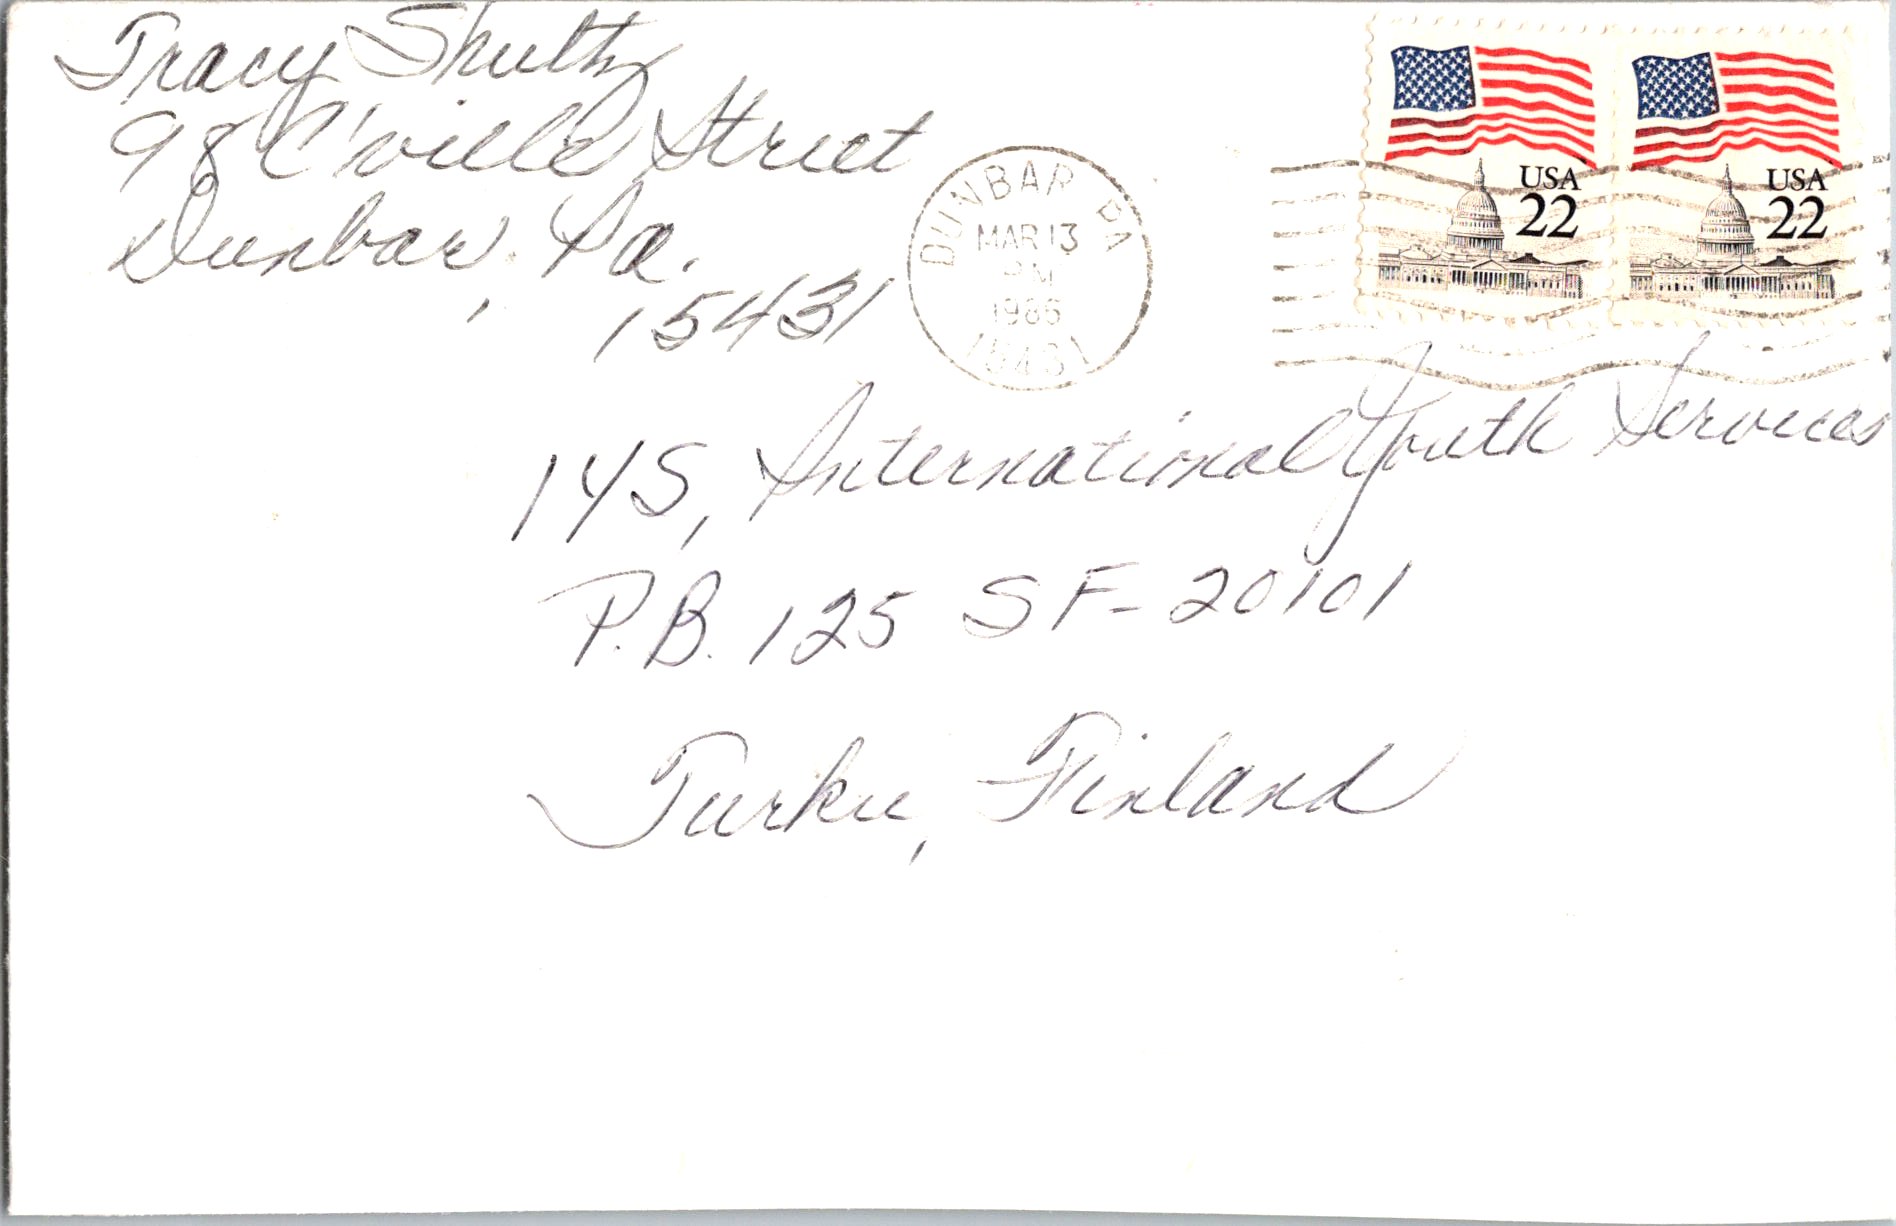 Tracy Shultz
98 C'ville Street
Dunbar, Pa.
15431
DUNBAR PA
MAR 13
PM
1986
15431
USA
22
USA
22
IYS, International Youth Services
P.B. 125 SF-20101
Turku, Finland